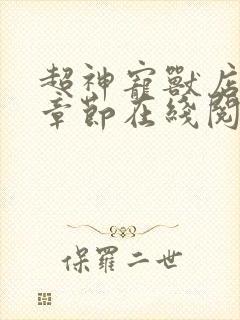 超神寵獸店
章節在綫閱
保羅二世